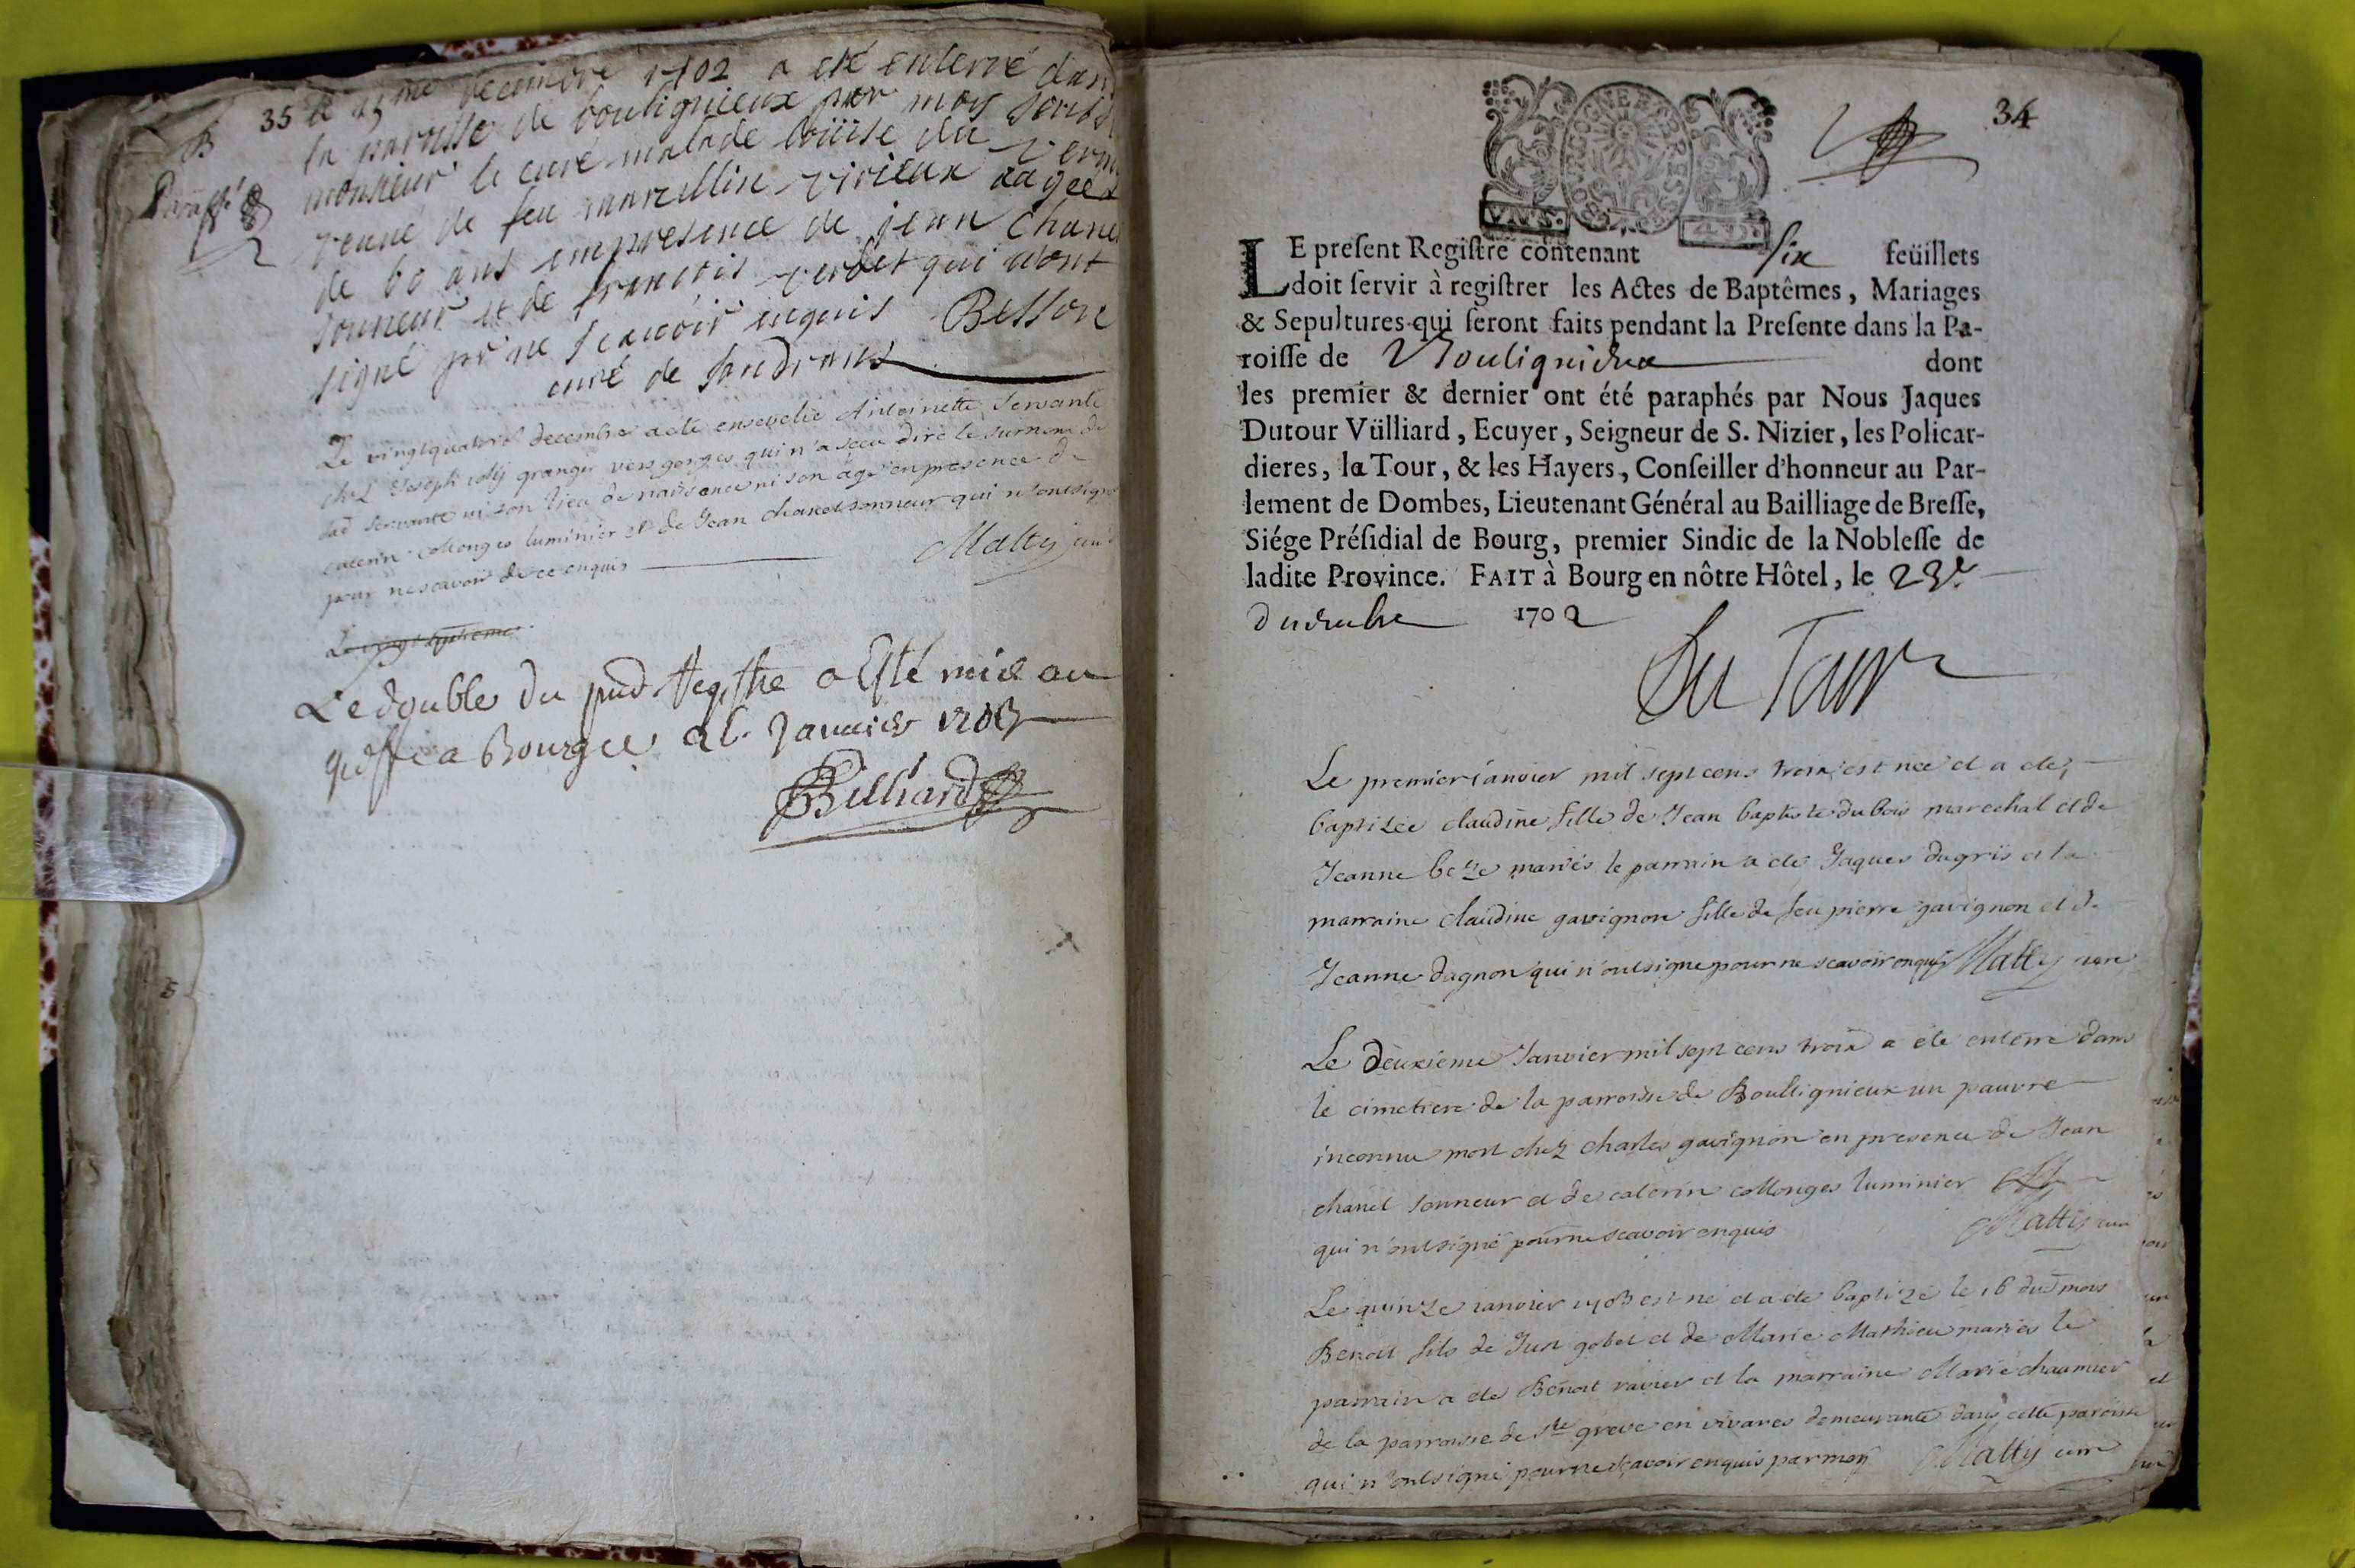 35 le 15me decembre 1702 a eté enterré dans
B
la paroisse de boulignieux par moy
Paraffé
monsieur le curé malade loüise du
veuve de feu marcellin virieux aagée
de 60 ans en presence de jean Chanel
sonneur et de francois verdet qui n'ont
signé pr ne scavoir enquis Besson
curé de Sandrans
Le vingtquatre decembre a eté ensevelie Antoinette servante
chez Joseph granger vers gorges qui n'a sceu dire le surnom de
lad servante ni son lieu de naissance ni son age en presence de
caterin collonges luminier et de Jean chanel sonneur qui n'ont signé
pour ne scavoir de ce enquis Mattij curé
Le double du pnd Registre a Esté mis au
greffe a Bourg ce Janvier 1703
Billiard
34
BOURGOGNE BRESSE
LE present Registre contenant six feüillets
doit servir à registrer les Actes de Baptêmes, Mariages
& Sepultures qui seront faits pendant la Presente dans la Pa-
roisse de Boulignieux dont
les premier & dernier ont été paraphés par Nous Jaques
Dutour Vülliard, Ecuyer, Seigneur de S. Nizier, les Policar-
dieres, la Tour, & les Hayers, Conseiller d'honneur au Par-
lement de Dombes, Lieutenant Général au Bailliage de Bresse,
Siége Présidial de Bourg, premier Sindic de la Noblesse de
ladite Province. FAIT à Bourg en nôtre Hôtel, le 23e
decembre 1702
Du Tour
Le premier ianvier mil sept cens trois est née et a eté
baptizée claudine fille de Jean baptiste dubois marechal et de
Jeanne beze mariés le parrain a eté Jaques dugris et la
marraine claudine gavignon fille de feu pierre gavignon et de
Jeanne dagnon qui n'ont signe pour ne scavoir enquis Mattij curé
Le deuxieme Janvier mil sept cens trois a eté enterré dans
le cimetiere de la parroisse de Boullignieux un pauvre
inconnu mort chez charles gavignon en presence de Jean
chanel sonneur et de caterin collonges luminier
qui n'ont signé pour ne scavoir enquis Mattij curé
Le quinze ianvier 1703 est né et a eté baptizé le 16 dud mois
Benoit fils de Just gobet et de Marie Mathieu mariés le
parrain a eté Benoit ravier et la marraine Marie chaumier
de la parroisse de Ste greve en vivares demeurante dans cette paroisse
qui n'ont signé pour ne sçavoir enquis par moy Mattij curé